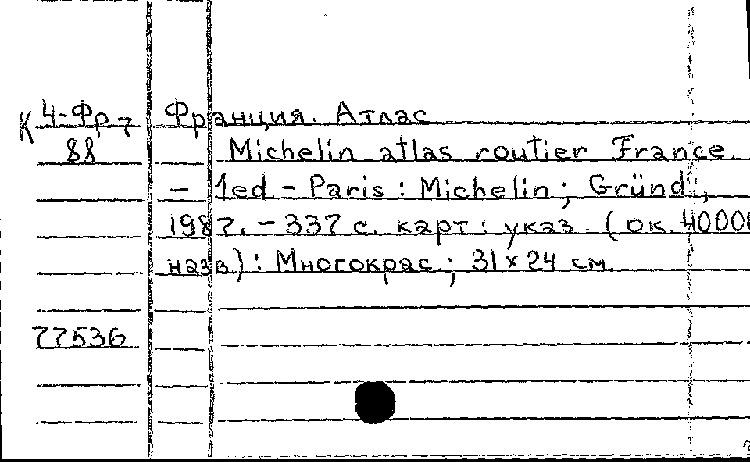 К 4-Фр-7 Франция. Атлас
88 Michelin atlas routier France.
– 1ed – Paris : Michelin ; Gründ,
1987. – 337 с. карт : указ. (ок. 40000
назв) : Многокрас ; 31×24 см.
77536